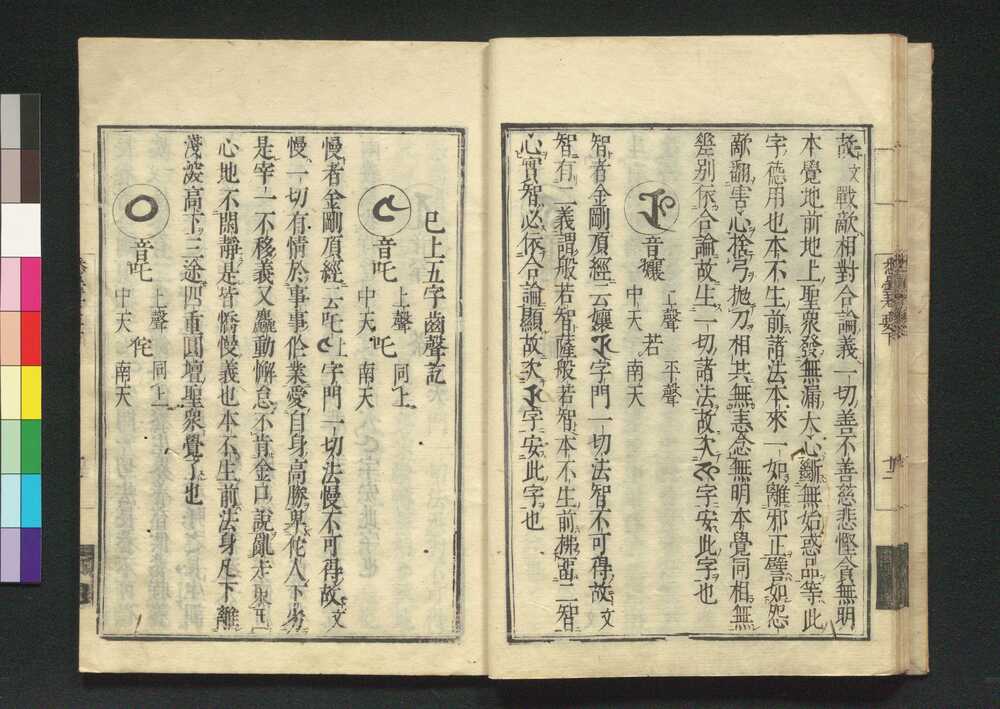 故文 戰敵相對合論義一切善不善慈悲慳貪無明
本覺地前地上聖衆發無漏大心斷無始惑品等此
字德用也本不生前諸法本來一如離邪正譬如怨
敵翻害心捨弓抛刀相共無恚念無明本覺同相無
差別依合論故生一切諸法故次字安此字也
音孃 上聲 中天 若 平聲 南天
智者金剛頂經云孃字門一切法智不可得故文
智有二義謂般若智薩般若智本不生前佛智二智
心實智必依合論顯故次字安此字也
已上五字齒聲訖
音吒 上聲 中天 吒 同上 南天
慢者金剛頂經云吒上字門一切法慢不可得故文
慢一切有情於事事作業愛自身高勝卑佗人下劣
是宰一不移義又麤動懈怠不肯金口說亂走東西
心地不閑靜是皆憍慢義也本不生前法身凡下離
淺波高下三途四重圓壇聖衆覺了也
音吒 上聲 中天 侘 同上 南天